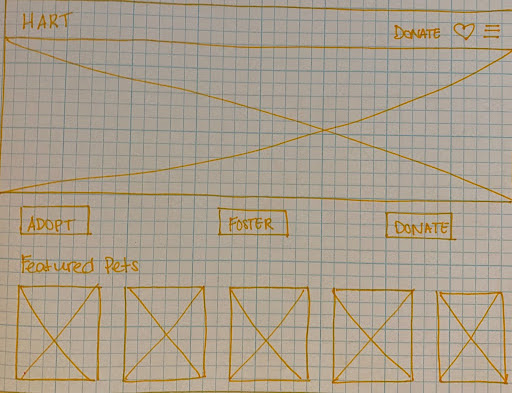 HART
DONATE
ADOPT
FOSTER
DONATE
Featured Pets